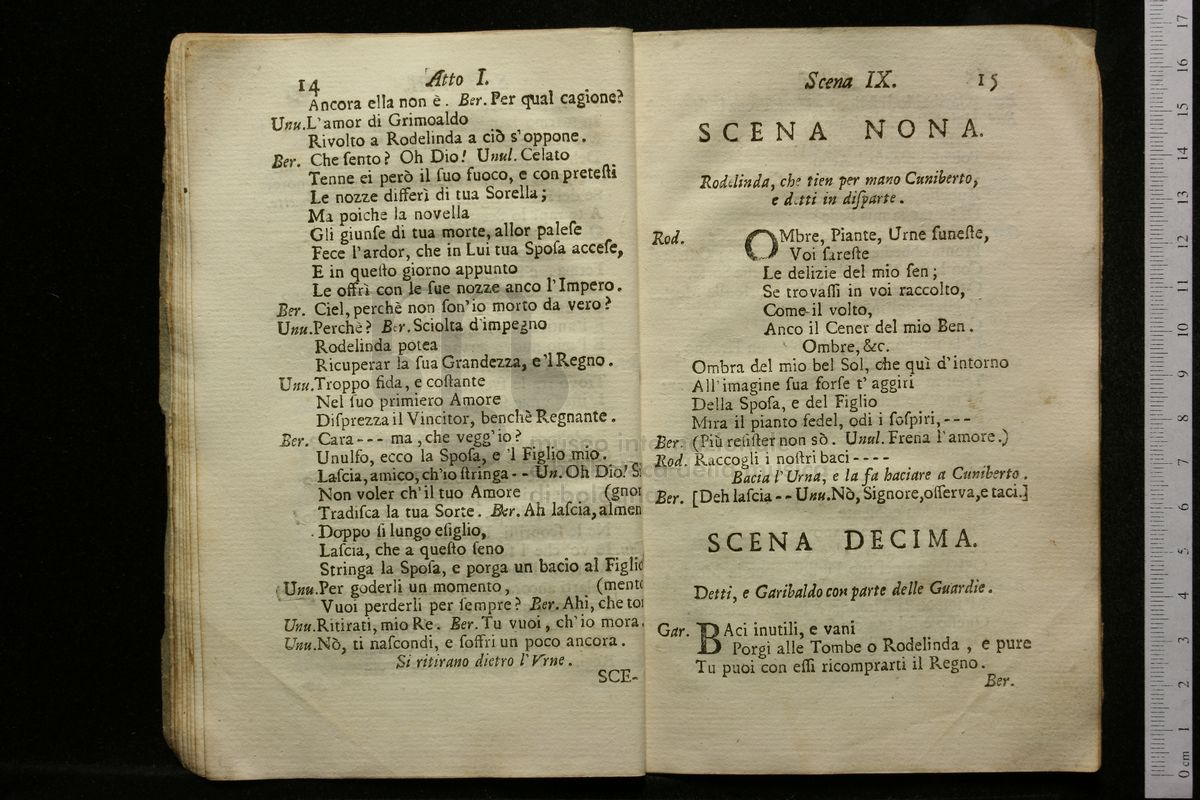 14 Atto I.
Ancora ella non è. Ber. Per qual cagione?
Unu. L'amor di Grimoaldo
Rivolto a Rodelinda a ciò s'oppone.
Ber. Che ſento? Oh Dio! Unul. Celato
Tenne ei però il ſuo fuoco, e con preteſti
Le nozze differì di tua Sorella;
Ma poiche la novella
Gli giunſe di tua morte, allor paleſe
Fece l'ardor, che in Lui tua Spoſa acceſe,
E in queſto giorno appunto
Le offrì con le ſue nozze anco l'Impero.
Ber. Ciel, perchè non ſon'io morto da vero?
Unu. Perchè? Ber. Sciolta d'impegno
Rodelinda potea
Ricuperar la ſua Grandezza, e'l Regno.
Unu. Troppo fida, e coſtante
Nel ſuo primiero Amore
Diſprezza il Vincitor, benchè Regnante.
Ber. Cara--- ma, che vegg'io?
Unulfo, ecco la Spoſa, e 'l Figlio mio.
Laſcia, amico, ch'io ſtringa-- Un. Oh Dio! Si
Non voler ch'il tuo Amore (gnor
Tradiſca la tua Sorte. Ber. Ah laſcia, almen
Doppo ſi lungo eſiglio,
Laſcia, che a queſto ſeno
Stringa la Spoſa, e porga un bacio al Figlio
Unu. Per goderli un momento, (mento
Vuoi perderli per ſempre? Ber. Ahi, che tor
Unu. Ritirati, mio Re. Ber. Tu vuoi, ch'io mora.
Unu. Nò, ti naſcondi, e ſoffri un poco ancora.
Si ritirano dietro l'Vrne.
SCE-
Scena IX. 15
SCENA NONA.
Rodelinda, che tien per mano Cuniberto,
e detti in diſparte.
Rod. OMbre, Piante, Urne funeſte,
Voi ſareſte
Le delizie del mio ſen;
Se trovaſſi in voi raccolto,
Come il volto,
Anco il Cener del mio Ben.
Ombre, &c.
Ombra del mio bel Sol, che quì d'intorno
All'imagine ſua forſe t'aggiri
Della Spoſa, e del Figlio
Mira il pianto fedel, odi i ſoſpiri,---
Ber. (Più reſiſter non sò. Unul. Frena l'amore.)
Rod. Raccogli i noſtri baci----
Bacia l'Urna, e la fa baciare a Cuniberto.
Ber. [Deh laſcia-- Unu. Nò, Signore, oſſerva, e taci.]
SCENA DECIMA.
Detti, e Garibaldo con parte delle Guardie.
Gar. BAci inutili, e vani
Porgi alle Tombe o Rodelinda, e pure
Tu puoi con eſſi ricomprarti il Regno.
Ber.
museo inte
della musica
di bologna
0 cm 1 2 3 4 5 6 7 8 9 10 11 12 13 14 15 16 17